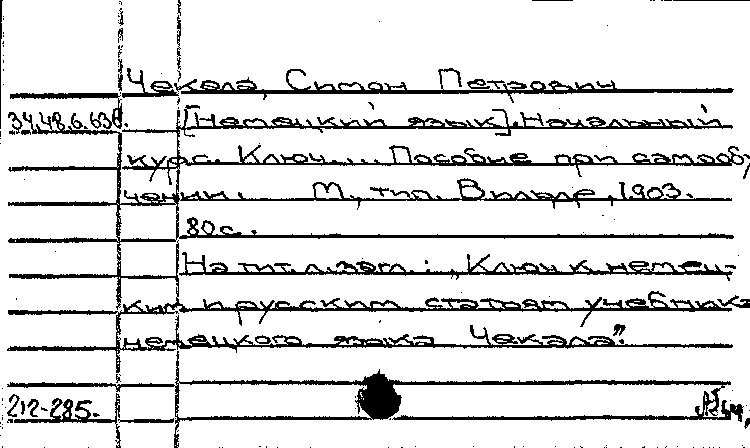 Чекала, Симон Петрович
34.48.6.638. [Немецкий язык]. Начальный
курс. Ключ... Пособие при самообу
чении. М., тип. Вильде, 1903.
80 с.
На тит. л. загл.: „Ключ к немец-
ким и русским статьям учебника
немецкого языка Чекала".
212-285.